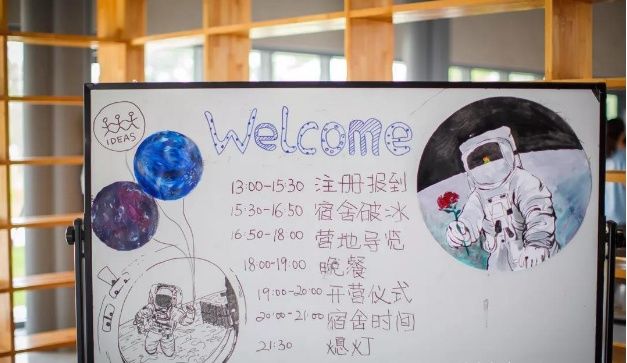 IDEAS
Welcome
13:00-15:30 注册报到
15:30-16:50 宿舍破冰
16:50-18:00 营地导览
18:00-19:00 晚餐
19:00-20:00 开营仪式
20:00-21:00 宿舍时间
21:30 熄灯